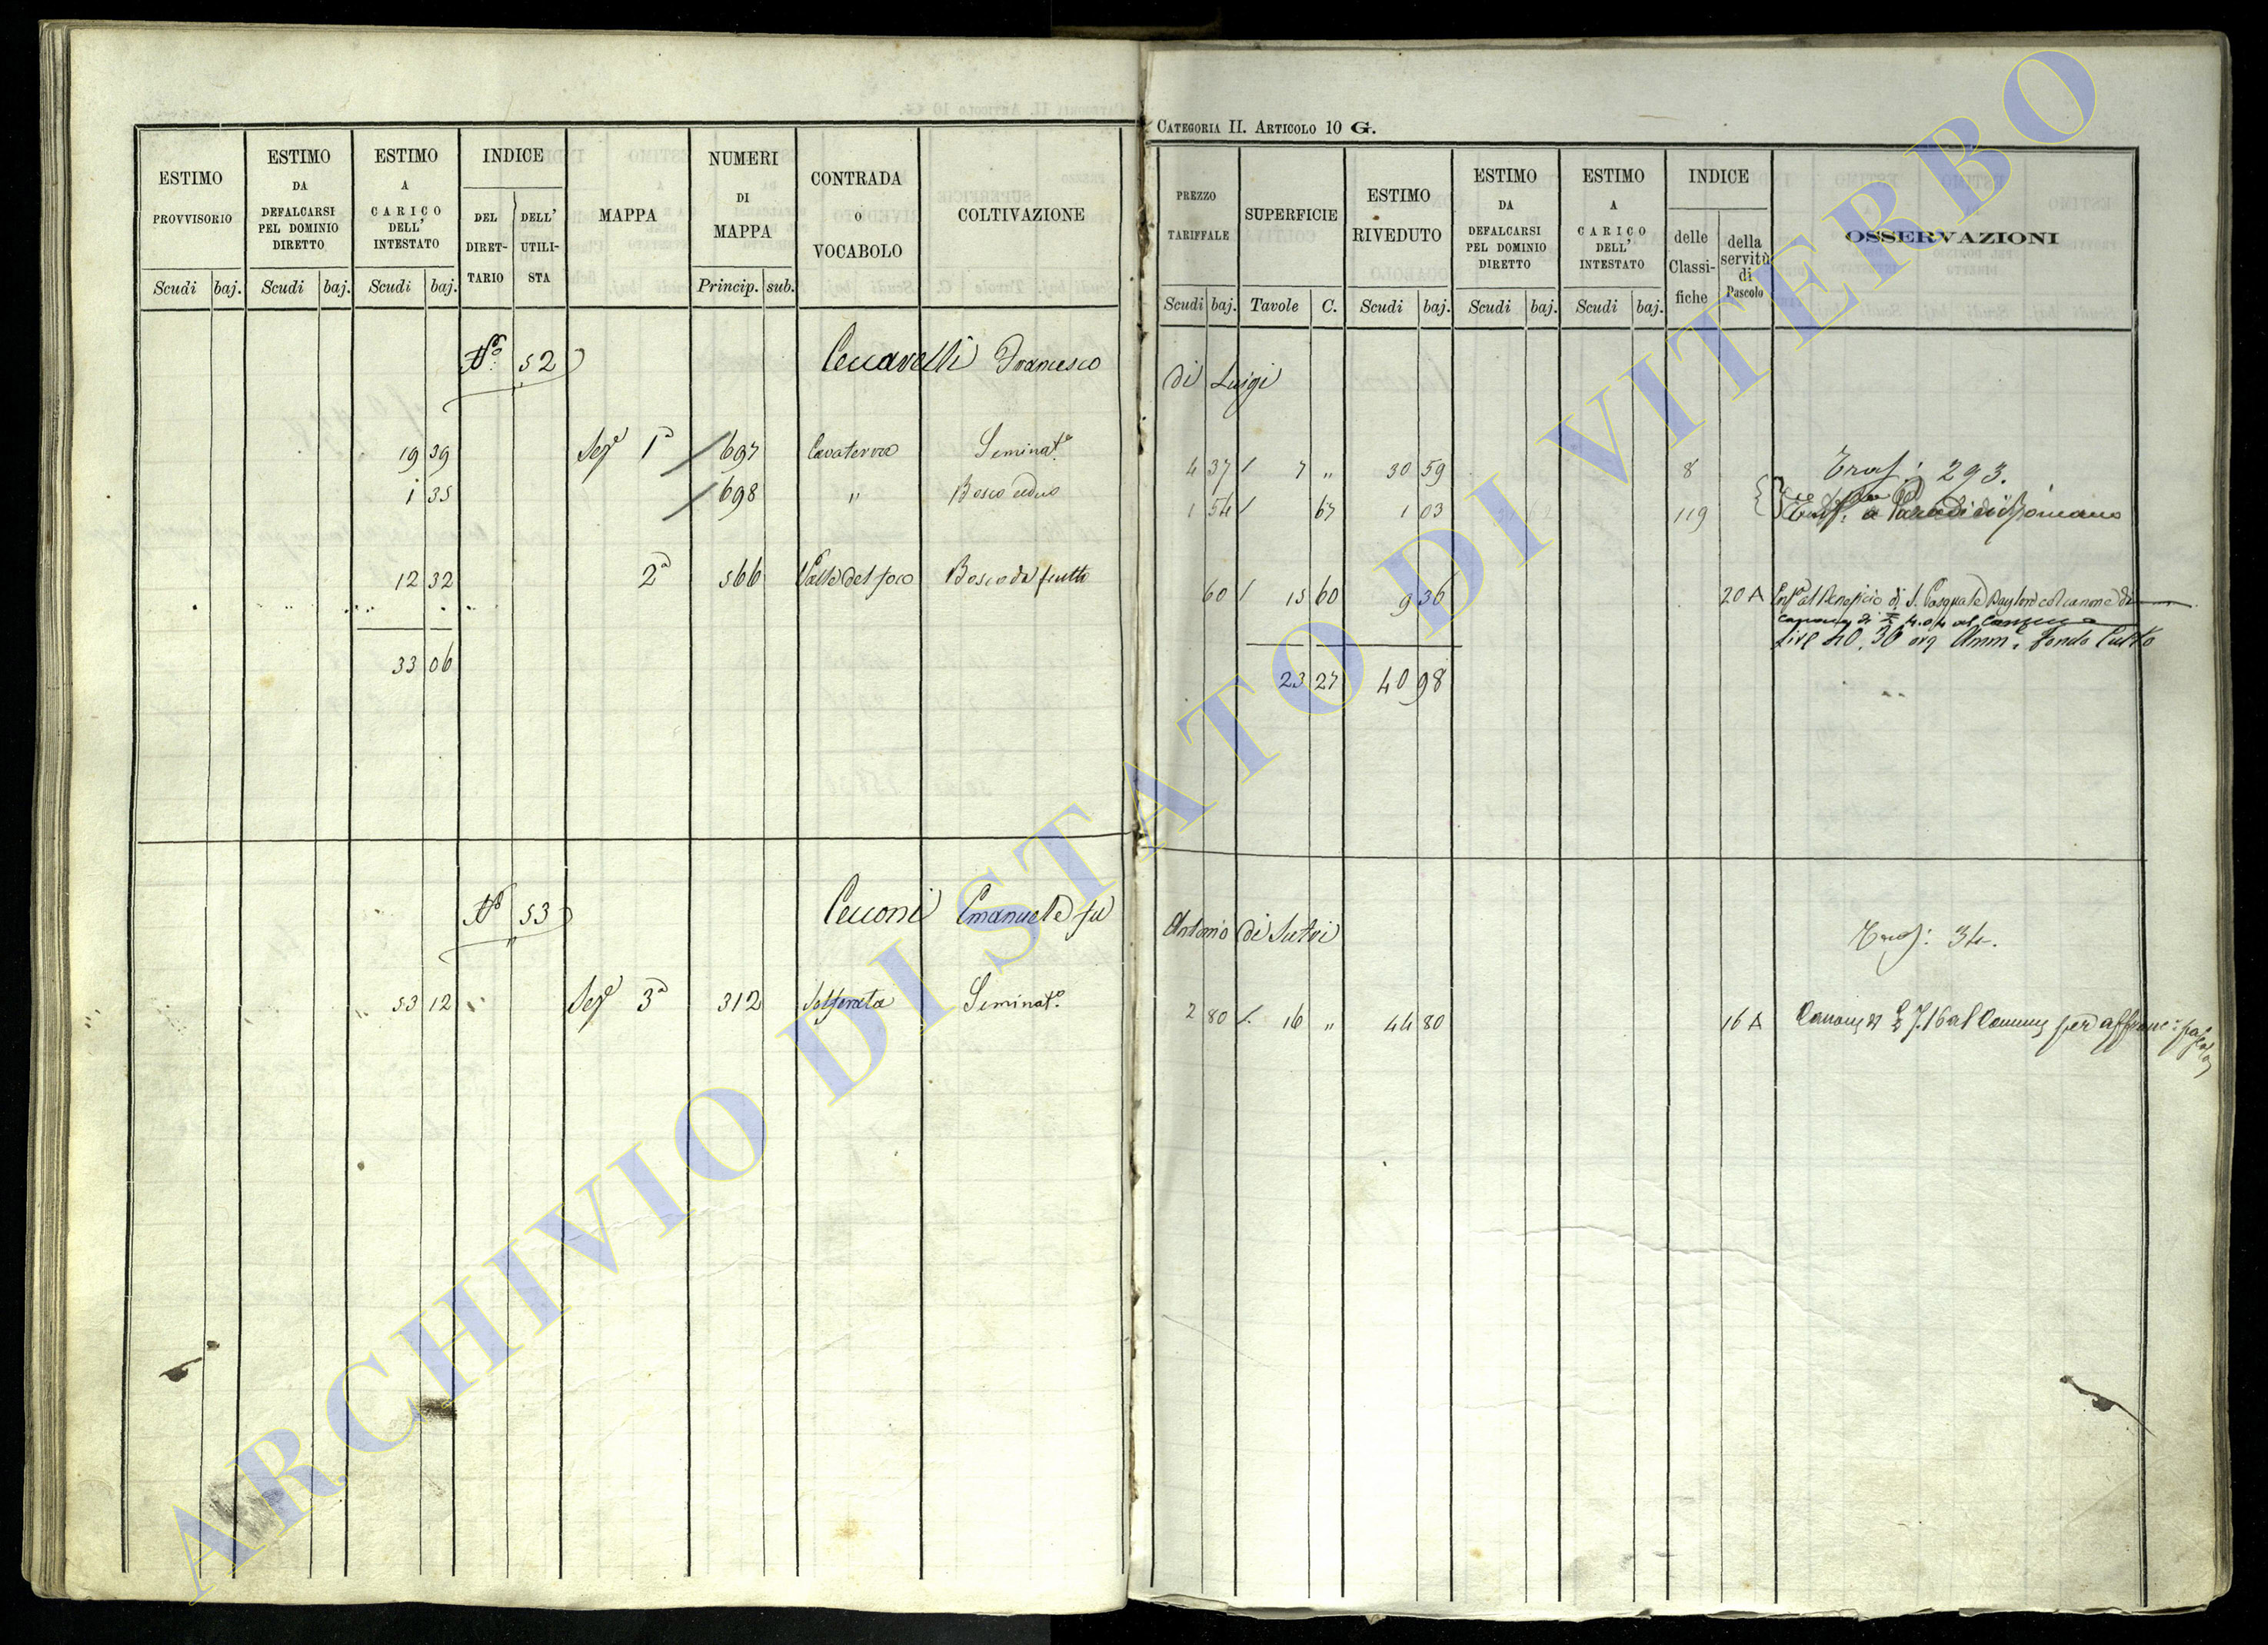 CATEGORIA II. ARTICOLO 10 G.
ESTIMO PROVVISORIO
Scudi baj.
ESTIMO DA DEFALCARSI PEL DOMINIO DIRETTO
Scudi baj.
ESTIMO A CARICO DELL' INTESTATO
Scudi baj.
INDICE
DEL DIRET-TARIO
DELL' UTILI-STA
MAPPA
NUMERI DI MAPPA
Princip. sub.
CONTRADA O VOCABOLO
COLTIVAZIONE
PREZZO TARIFFALE
Scudi baj.
SUPERFICIE
Tavole C.
ESTIMO RIVEDUTO
Scudi baj.
ESTIMO DA DEFALCARSI PEL DOMINIO DIRETTO
Scudi baj.
ESTIMO A CARICO DELL' INTESTATO
Scudi baj.
INDICE
delle Classi-fiche
della servitù di Pascolo
OSSERVAZIONI
No. 52 Ceccarelli Francesco di Luigi
19 39 Sez.e 1a 697 Cavaterra Seminat.o 4 37 7 " 30 59 8 Trasf: 293.
1 35 698 " Bosco ceduo 1 54 67 1 03 119
12 32 2a 566 Valle del foco Bosco da frutto 60 15 60 9 36 20 A Enf.a al Beneficio di S. Pasquale Baylon col canone di
Fondo Culto
33 06 23 27 40 98
No 53 Cecconi Emanuele fu Antonio di Sutri Trasf: 34.
53 12 Sez.e 3a 312 Solforata Seminat.o 2 80 16 " 44 80 16 A
ARCHIVIO DI STATO DI VITERBO